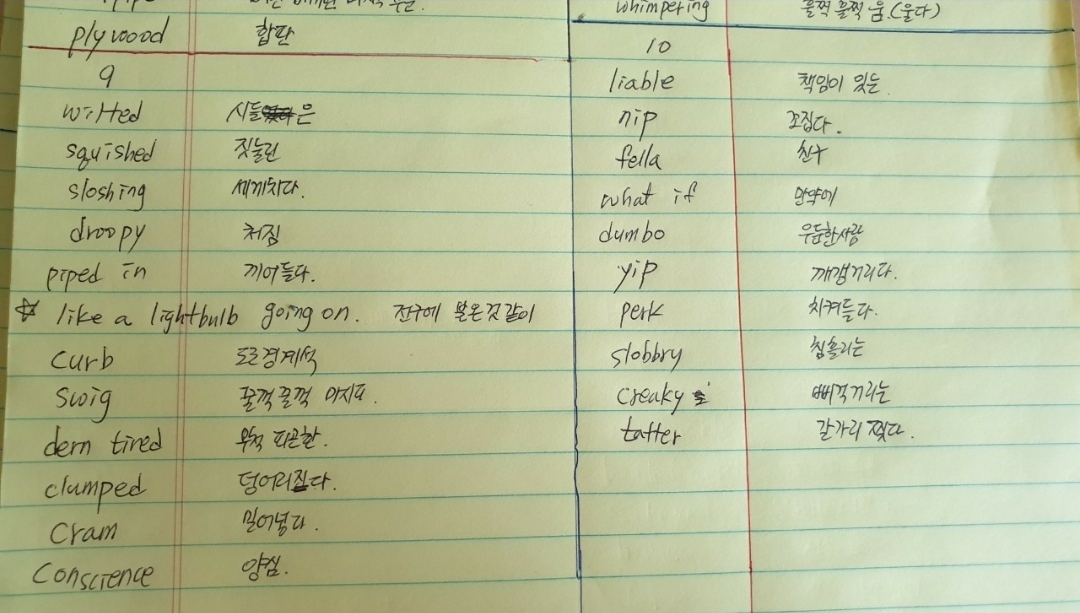 plywood 합판
9
wilted 시들은
squished 짓눌린
sloshing 세게치다.
droopy 처짐
piped in 끼어들다.
☆ like a lightbulb going on. 전구에 불온것같이
curb 도로경계석
swig 꿀꺽꿀꺽 마시다.
dern tired 무척 피곤한.
clumped 덩어리지다.
cram 밀어넣다.
conscience 양심.
whimpering 훌쩍훌쩍 움.(울다)
10
liable 책임이 있는
nip 꼬집다.
fella 친구
what if 만약에
dumbo 우둔한사람
yip 깨갱거리다.
perk 치켜들다.
slobbry 침흘리는
creaky 삐걱거리는
tatter 갈가리 찢다.